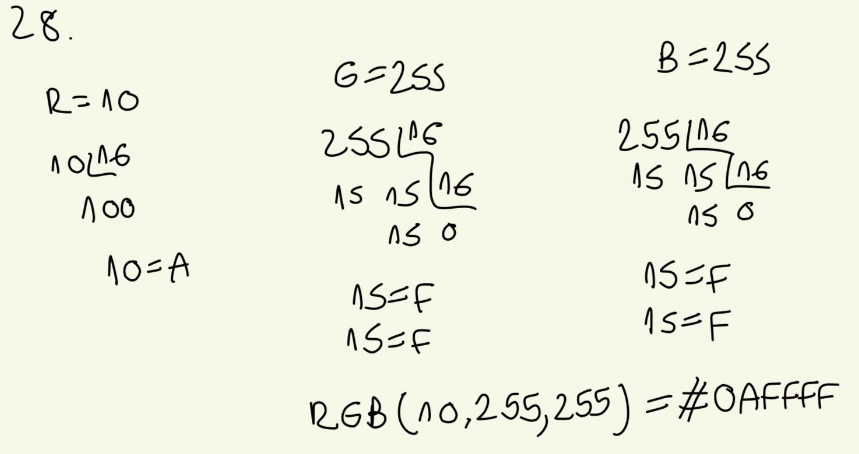 28.
R=10
10 16
10 0
10=A
G=255
255 16
15 15 16
15 0
15=F
15=F
B=255
255 16
15 15 16
15 0
15=F
15=F
RGB(10,255,255)=#0AFFFF